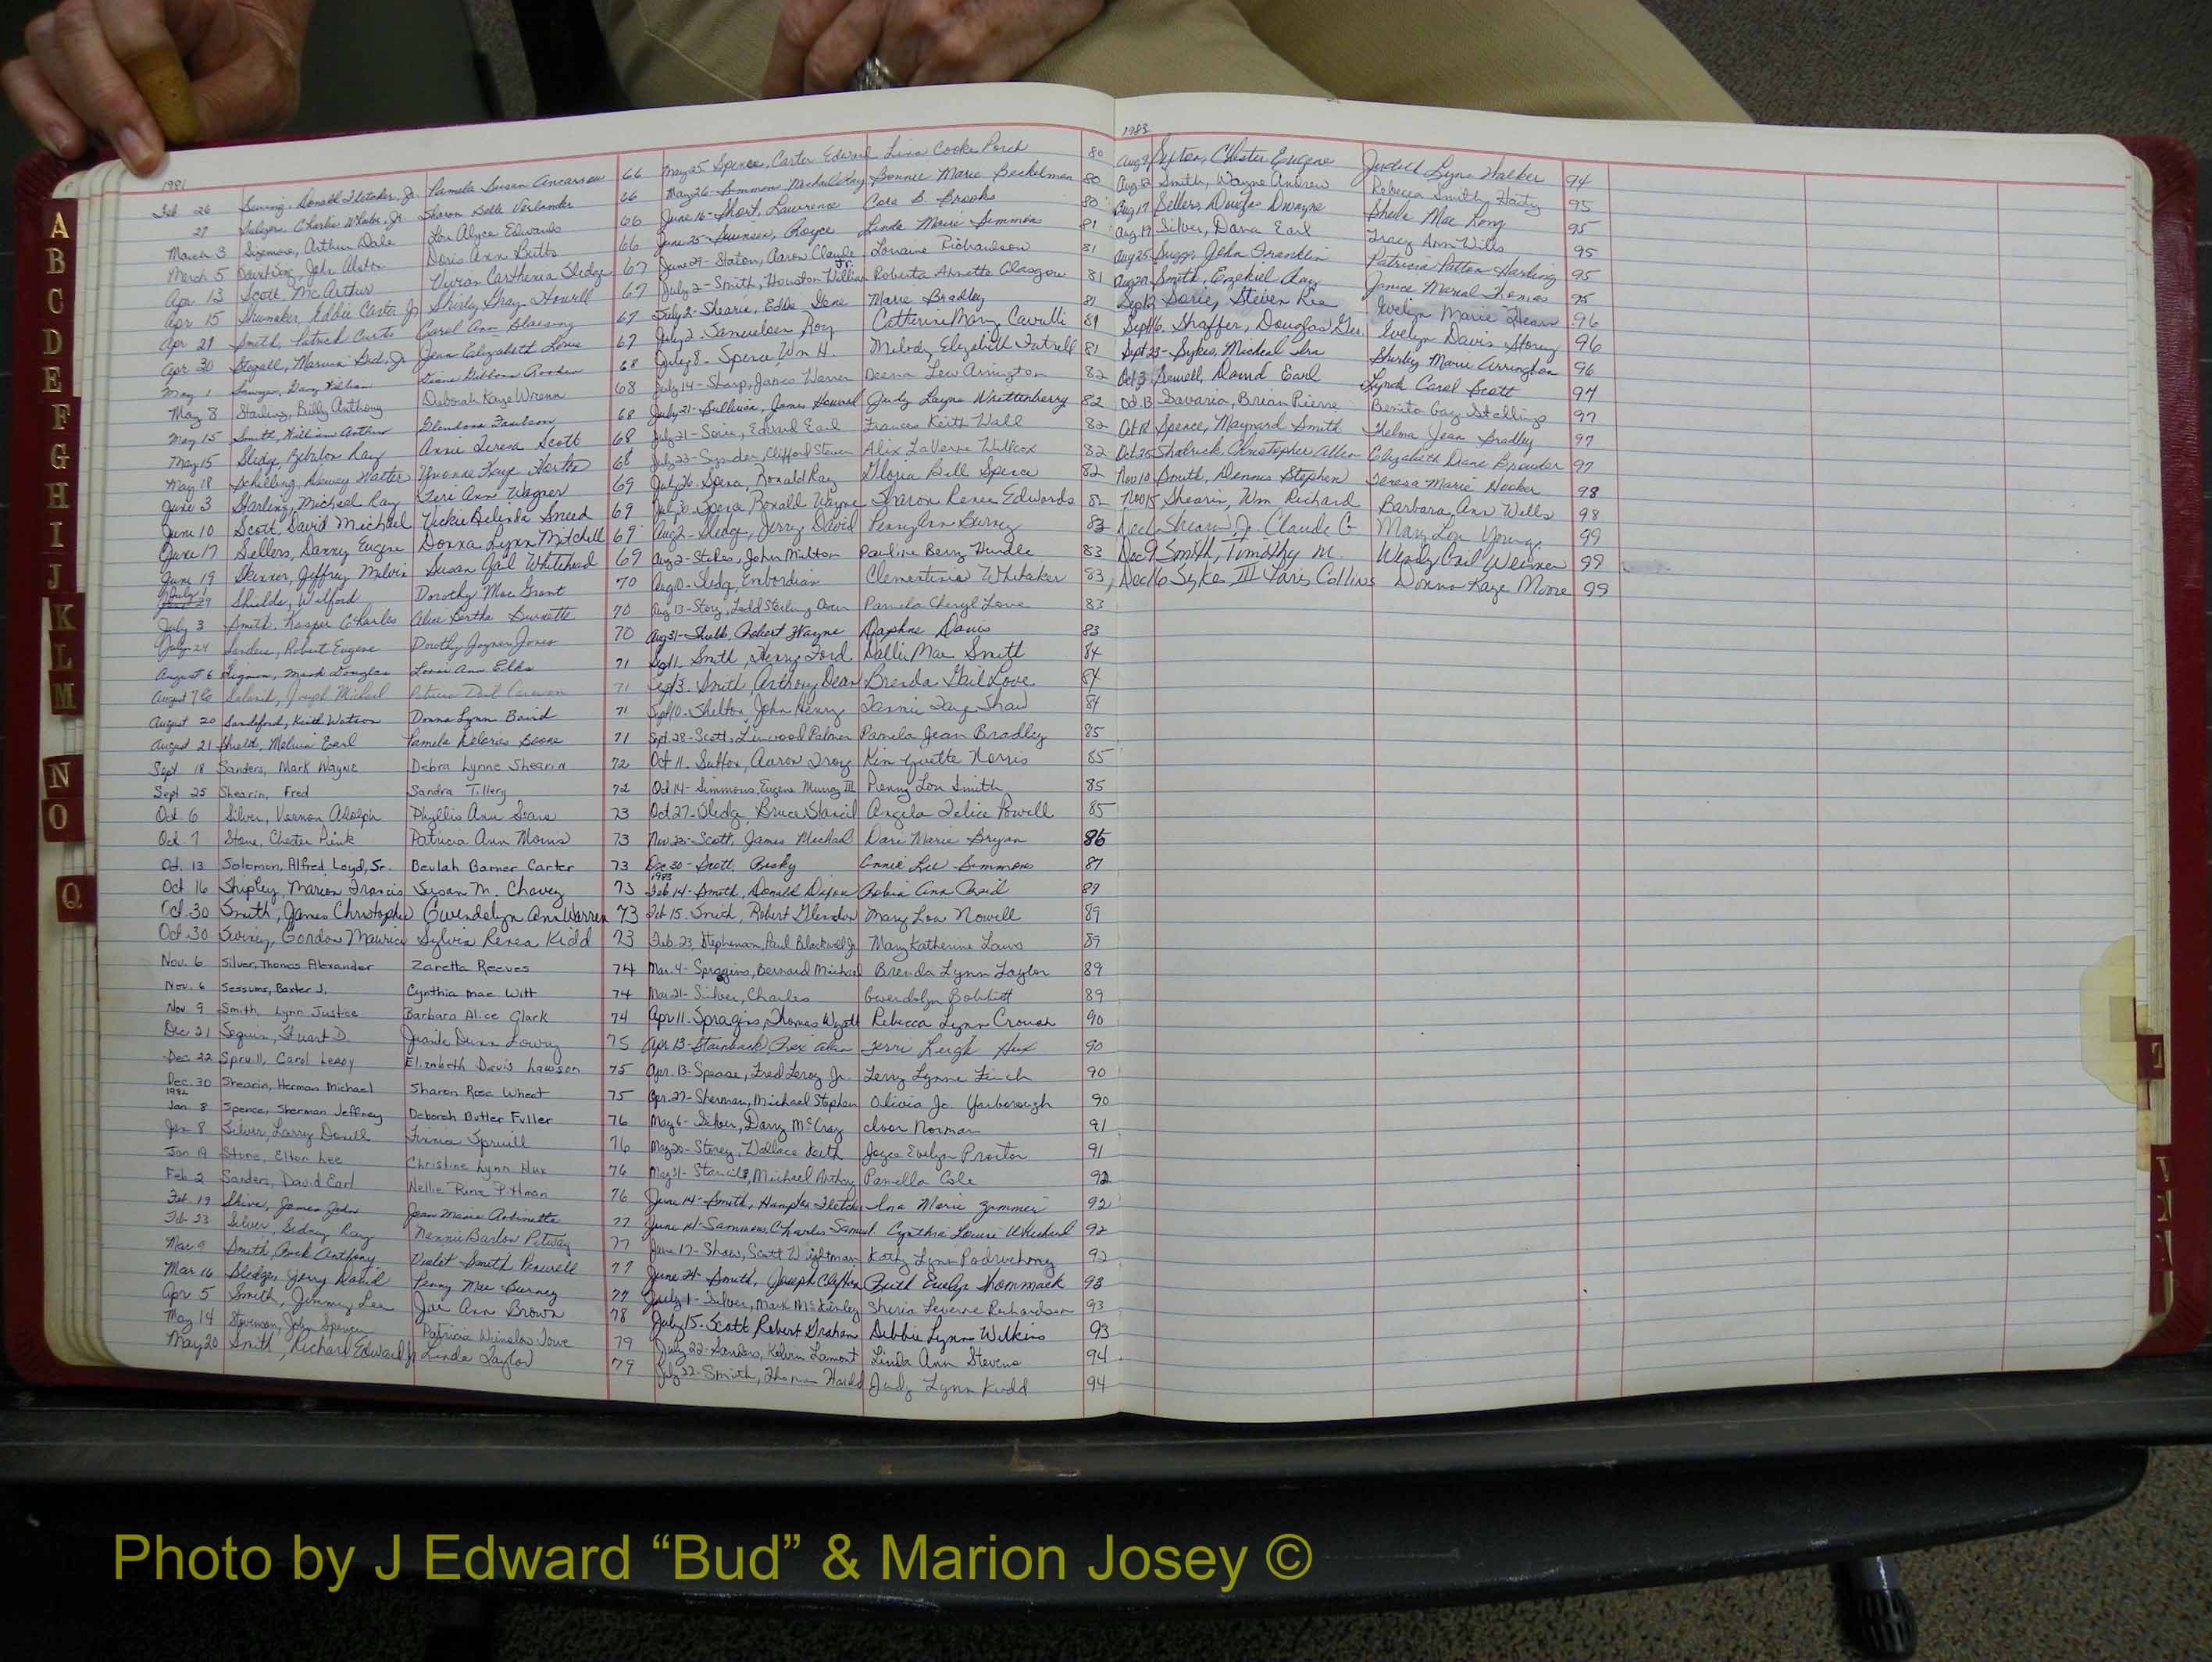 1981
Feb 26 Donald Fletcher, Jr. Pamela Susan Ancarrow 66
27 Charlie Wheeler, Jr. Sharon Belle Verlander 66
March 3 Sizemore, Arthur Dale Lou Alyce Edwards 66
March 5 John Alston Doris Ann Batts 66
Apr 13 Scott, McArthur Vivian Carthenia Sledge 67
Apr 15 Shumaker, Eddie Carter Jr Shirley Gray Howell 67
Apr 21 Smith, Patrick Curtis Carol Ann Blessing 67
Apr 30 Stegall, Marcus Jr Jean Elizabeth Lowe 67
May 1 Sawyer, Gary 68
May 8 Starling, Billy Anthony Deborah Kaye Wrenn 68
May 15 Smith, William Arthur Glendora Faulcon 68
May 15 Sledge, Ray Annie Teresa Scott 68
May 18 Schilling, Dewey Walter Yvonne Faye Horton 68
June 3 Starling, Michael Ray Keri Ann Wagner 69
June 10 Scott, David Michael Vickie Belinda Sneed 69
June 17 Sellers, Danny Eugene Donna Lynn Mitchell 69
June 19 Skinner, Jeffrey Melvin Susan Gail Whitehead 69
July 1 Shields, Wilford Dorothy Mae Grant 70
July 3 Smith, Kasper Charles Alice Bertha Burnette 70
July 24 Sanders, Robert Eugene Dorothy Joyner Jones 70
August 6 Mark Douglas Lorri Ann Elks 71
August 7 Joseph Michael Patricia 71
August 20 Sandeford, Keith Watson Donna Lynn Baird 71
August 21 Shield, Melvin Earl Pamela Delories Boone 71
Sept 18 Sanders, Mark Wayne Debra Lynne Shearin 72
Sept 25 Shearin, Fred Sandra Tillery 72
Oct 6 Silver, Vernon Adolph Phyllis Ann Sears 73
Oct. 7 Stone, Chester Pink Patricia Ann Morris 73
Oct. 13 Solomon, Alfred Loyd, Sr. Beulah Barner Carter 73
Oct 16 Shipley, Marion Francis Susan M. Chavez 73
Oct. 30 Smith, James Christopher Gwendolyn Ann Warren 73
Oct. 30 Swiney, Gordon Maurice Sylvia Renea Kidd 73
Nov. 6 Silver, Thomas Alexander Zaretta Reeves 74
Nov. 6 Sessums, Baxter J. Cynthia Mae Witt 74
Nov 9 Smith, Lynn Justice Barbara Alice Clark 74
Dec 21 Seguin, Stuart D. Dunn Lowry 75
Dec 22 Spruill, Carol Leroy Elizabeth Davis Lawson 75
Dec. 30 Shearin, Herman Michael Sharon Rose Wheat 75
1982
Jan. 8 Spence, Sherman Jeffrey Deborah Butler Fuller 76
Jan 8 Silver, Larry Donell Spruill 76
Jan 19 Stone, Elton Lee Christine Lynn Hux 76
Feb 2 Sanders, David Earl Nellie Rene Pittman 76
Feb. 19 Shive, James John Jean Marie Robinette 77
Feb 23 Silver, Sidney Ray Nannie Barlow Pitway 77
Mar 9 Smith, Buck Anthony Violet Smith 77
Mar 16 Sledge, Jerry David Penny Mae Burney 77
Apr 5 Smith, Jimmy Lee Joe Ann Brown 78
May 14 Stevenson, John Spencer Patricia Winslow Towe 79
May 20 Smith, Richard Edward Jr Linda Taylor 79
May 25 Spence, Carter Edward Lina Cooke Porch 80
May 26 Simmons Michael Ray Bonnie Marie Beckelman 80
June 16 - Short, Lawrence Cora B. Brooks 80
June 25 - Swinson, Royce Linda Marie Simmons 81
June 29 - Staton, Aaron Claude Jr. Lorraine Richardson 81
July 2 - Smith, Houston William Roberta Annette Glasgow 81
July 2 - Shearin, Eddie Gene Marie Bradley 81
July 2 - Samuelson Roy Catherine Mary Cavulli 81
July 8 - Spence, Wm H. Melody Elizabeth Futrell 81
July 14 - Sharp, James Warren Deena Lew Arrington 82
July 21 - Sullivan, James Howard Judy Layne Whettenberry 82
July 21 - Edward Earl Frances Keith Wall 82
July 23 - Snyder, Clifford Steven Alix LaVerne Willcox 82
July 26 Spera, Ronald Ray Gloria Bell Spence 82
Ronald Wayne Sharon Renee Edwards 82
Aug 2 - Sledge, Jerry David Penny Ann Burney 83
Aug 2 - Stokes, John Milton Pauline Berry Hundle 83
Aug 10 - Sledge, Clementina Whitaker 83
Aug 13 - Story, Ladd Sterling Owen Pamela Cheryl Love 83
Aug 31 - Shields, Robert Wayne Daphne Davis 83
Sept 1 - Smith, Henry Ford Sallie Mae Smith 84
Sept 3 - Smith, Anthony Dean Brenda Gail Love 84
Sept 10 - Shelton, John Henry Tammie Faye Shaw 84
Sept. 28 - Scott, Linwood Palmer Pamela Jean Bradley 85
Oct 11 - Sutton, Aaron Troy Kim Yvette Norris 85
Oct 14 - Simmons, Eugene Murray III Penny Lou Smith 85
Oct 27 - Sledge, Bruce Stancil Angela Felice Powell 85
Nov. 23 - Scott, James Michael Dari Marie Bryan 86
Dec 30 - Scott, Annie Lee Simmons 87
1983
Feb 14 - Smith, Donald Robin Ann 89
Feb 15 - Smith, Robert Glendon Mary Lou Nowell 89
Feb. 23, Stephenson, Paul Blackwell Jr Mary Katherine Laws 89
Mar. 4 - Spraggins, Bernard Michael Brenda Lynn Taylor 89
Mar 21 - Silver, Charles Gwendolyn Bobbitt 89
Apr 11 - Spragins, Thomas Wyatt Rebecca Lynn Crouch 90
Apr 13 - Stainback, Rex Alan Terri Leigh Hux 90
Apr. 13 - Spease, Fred Leroy Jr. Terry Lynne Finch 90
Apr. 27 - Sherman, Michael Stephen Olivia Jo Yarborough 90
May 6 - Silver, Dary McCray Norman 91
May 20 - Storey, Wallace Keith Joyce Evelyn Proctor 91
May 31 - Stancil, Michael Anthony Pamella Cole 92
June 14 - Smith, Hampton Fletcher Ina Marie Zimmer 92
June 14 - Sammons, Charles Samuel Cynthia Louise Whichard 92
June 17 - Shaw, Scott Wightman Kathy Lynn 92
June 24 - Smith, Joseph Clifton Ruth Evelyn Hammack 93
July 1 - Silver, Mark McKinley Sheria Leverne Richardson 93
July 15 - Scott Robert Graham Debbie Lynn Wilkins 93
July 22 - Sanders, Kelvin Lamont Linda Ann Stevens 94
July 22 - Smith, Thomas Harold Judy Lynn Kidd 94
1983
Aug 9 Chester Eugene Judith Lynn Walker 94
Aug 12 Smith, Wayne Andrew Rebecca Smith Harty 95
Aug 17 Sellers, Douglas Dwayne Sheila Mae Long 95
Aug 19 Silver, Dana Earl Tracy Ann Wills 95
Aug 25 Suggs, John Franklin Patricia Patton Harling 95
Smith, Ezekiel Ray Janice Marial Thomas 95
Sept 2 Steven Lee Evelyn Marie Hearn 96
Sept 16. Shaffer, Douglas Evelyn Davis Storey 96
Sept 23 - Sykes, Micheal Ira Shirley Marie Arrington 96
Oct 3 Sewell, David Earl Lynda Carol Scott 97
Oct. 13 Savaria, Brian Pierre Benita Gay Stallings 97
Spence, Maynard Smith Thelma Jean Bradley 97
Oct 25 Christopher Allen Elizabeth Diane Browder 97
Nov 10 Smith, Dennis Stephen Teresa Marie Hooker 98
Nov 15 Shearin, Wm Richard Barbara Ann Wells 98
Dec 1 Shearin Jr. Claude C Mary Lou Young 99
Dec 9 Smith, Timothy M. Wendy Gail Weisner 99
Dec 16 Sykes III Paris Collins Donna Kaye Moore 99
A
B
C
D
E
F
G
H
I
J
K
L
M
N
O
Q
T
V
Photo by J Edward “Bud” & Marion Josey ©